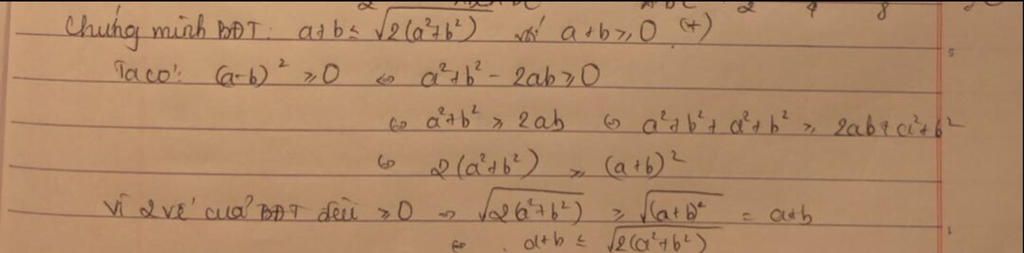 Chứng minh BĐT: a+b ≤ √2(a²+b²) với a+b ≥ 0 (*)
Ta có: (a-b)² ≥ 0 ⇔ a²+b² - 2ab ≥ 0
⇔ a²+b² ≥ 2ab ⇔ a²+b²+a²+b² ≥ 2ab+a²+b²
⇔ 2(a²+b²) ≥ (a+b)²
Vì 2 vế của BĐT đều ≥ 0 → √2(a²+b²) ≥ √(a+b)² = a+b
⇔ a+b ≤ √2(a²+b²)